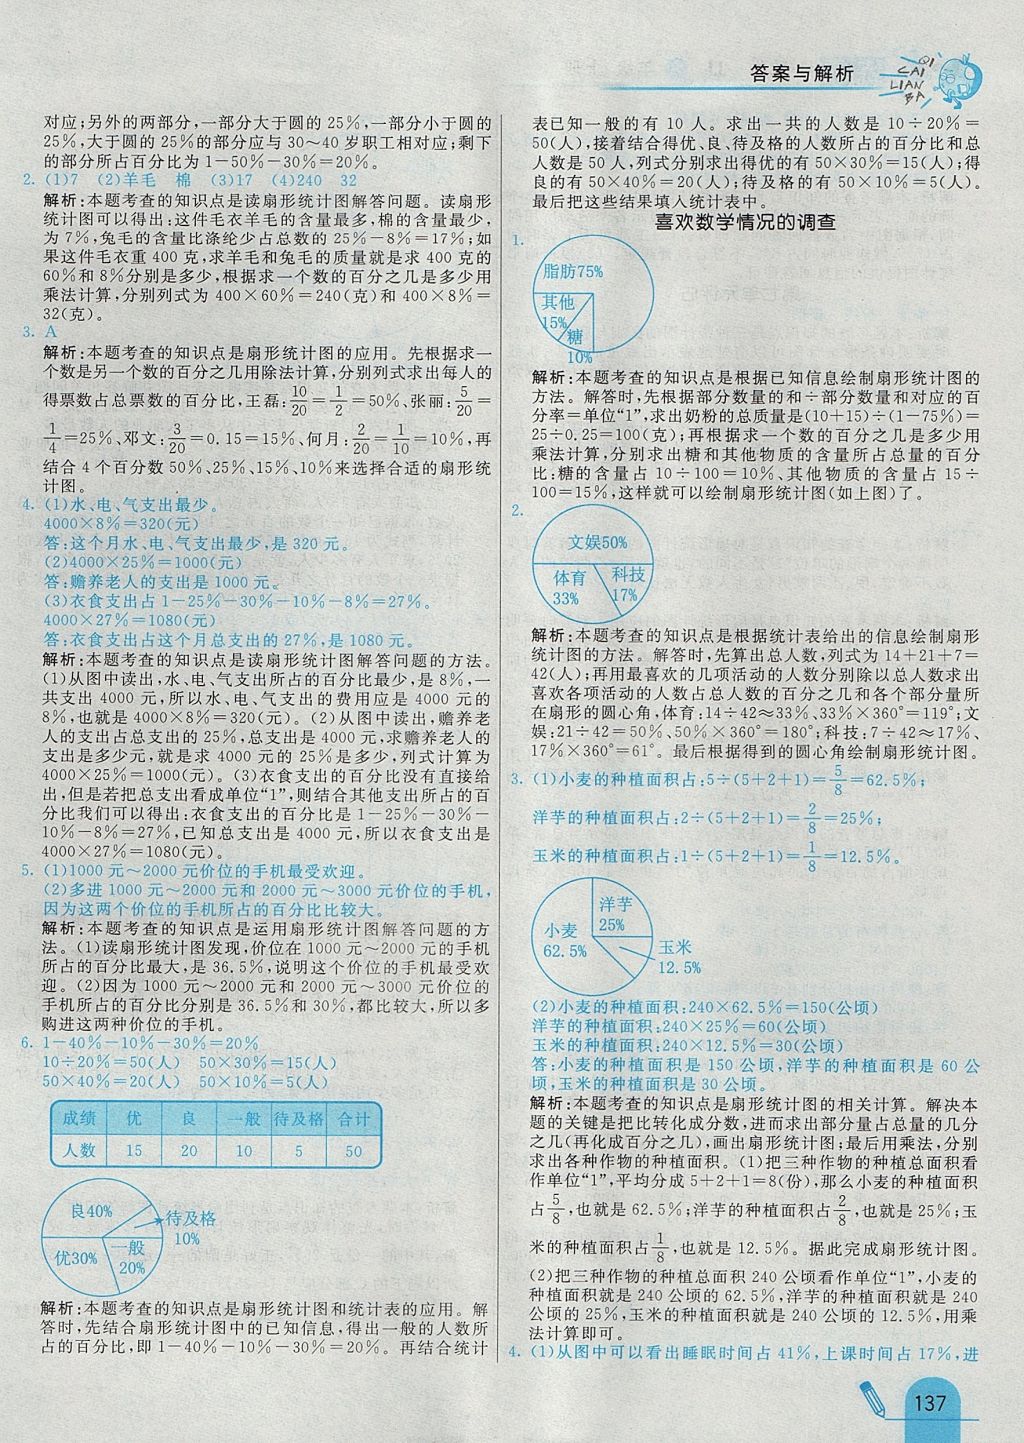 答案与解析
QI
CAI
LIAN
BA
对应;另外的两部分,一部分大于圆的25%,一部分小于圆的
25%,大于圆的25%的部分应与30~40岁职工相对应;剩下
的部分所占百分比为1-50%-30%=20%。
2. (1)7 (2)羊毛 棉 (3)17 (4)240 32
解析:本题考查的知识点是读扇形统计图解答问题。读扇形
统计图可以得出:这件毛衣羊毛的含量最多,棉的含量最少,
为7%,兔毛的含量比涤纶少占总数的25%-8%=17%;如
果这件毛衣重400克,求羊毛和兔毛的质量就是求400克的
60%和8%分别是多少,根据求一个数的百分之几是多少用
乘法计算,分别列式为400×60%=240(克)和400×8%=
32(克)。
3. A
解析:本题考查的知识点是扇形统计图的应用。先根据求一
个数是另一个数的百分之几用除法计算,分别列式求出每人的
得票数占总票数的百分比,王磊:10/20=1/2=50%、张丽:5/20=
1/4=25%、邓文:3/20=0.15=15%、何月:2/20=1/10=10%,再
结合4个百分数50%、25%、15%、10%来选择合适的扇形统
计图。
4. (1)水、电、气支出最少。
4000×8%=320(元)
答:这个月水、电、气支出最少,是320元。
(2)4000×25%=1000(元)
答:赡养老人的支出是1000元。
(3)衣食支出占1-25%-30%-10%-8%=27%。
4000×27%=1080(元)
答:衣食支出占这个月总支出的27%,是1080元。
解析:本题考查的知识点是读扇形统计图解答问题的方法。
(1)从图中读出,水、电、气支出所占的百分比最少,是8%,一
共支出4000元,所以水、电、气支出的费用应是4000元的
8%,也就是4000×8%=320(元)。(2)从图中读出,赡养老
人的支出占总支出的25%,总支出是4000元,求赡养老人的
支出是多少元,就是求4000元的25%是多少,列式计算为
4000×25%=1000(元)。(3)衣食支出的百分比没有直接给
出,但是若把总支出看成单位“1”,则结合其他支出所占的百
分比我们可以得出:衣食支出的百分比是1-25%-30%-
10%-8%=27%,已知总支出是4000元,所以衣食支出是
4000×27%=1080(元)。
5. (1)1000元~2000元价位的手机最受欢迎。
(2)多进1000元~2000元和2000元~3000元价位的手机,
因为这两个价位的手机所占的百分比比较大。
解析:本题考查的知识点是运用扇形统计图解答问题的方
法。(1)读扇形统计图发现,价位在1000元~2000元的手机
所占的百分比最大,是36.5%,说明这个价位的手机最受欢
迎。(2)因为1000元~2000元和2000元~3000元价位的
手机所占的百分比分别是36.5%和30%,都比较大,所以多
购进这两种价位的手机。
6. 1-40%-10%-30%=20%
10÷20%=50(人) 50×30%=15(人)
50×40%=20(人) 50×10%=5(人)
成绩 优 良 一般 待及格 合计
人数 15 20 10 5 50
良40%
待及格
10%
优30%
一般
20%
解析:本题考查的知识点是扇形统计图和统计表的应用。解
答时,先结合扇形统计图中的已知信息,得出一般的人数所
占的百分比,即1-40%-10%-30%=20%。再结合统计
表已知一般的有10人。求出一共的人数是10÷20%=
50(人),接着结合得优、良、待及格的人数所占的百分比和总
人数是50人,列式分别求出得优的有50×30%=15(人);得
良的有50×40%=20(人);待及格的有50×10%=5(人)。
最后把这些结果填入统计表中。
喜欢数学情况的调查
1.
脂肪75%
其他
15%
糖
10%
解析:本题考查的知识点是根据已知信息绘制扇形统计图的
方法。解答时,先根据部分数量的和÷部分数量和对应的百
分率=单位“1”,求出奶粉的总质量是(10+15)÷(1-75%)=
25÷0.25=100(克);再根据求一个数的百分之几是多少用
除法计算,分别求出糖和其他物质的含量所占总量的百分
比:糖的含量占10÷100=10%、其他物质的含量占15÷
100=15%,这样就可以绘制扇形统计图(如上图)了。
2.
文娱50%
体育
33%
科技
17%
解析:本题考查的知识点是根据统计表给出的信息绘制扇形
统计图的方法。解答时,先算出总人数,列式为14+21+7=
42(人);再用最喜欢的几项活动的人数分别除以总人数求出
喜欢各项活动的人数占总人数的百分之几和各个部分量所
在扇形的圆心角,体育:14÷42≈33%、33%×360°=119°;文
娱:21÷42=50%、50%×360°=180°;科技:7÷42≈17%、
17%×360°=61°。最后根据得到的圆心角绘制扇形统计图。
3. (1)小麦的种植面积占:5÷(5+2+1)=5/8=62.5%;
洋芋的种植面积占:2÷(5+2+1)=2/8=25%;
玉米的种植面积占:1÷(5+2+1)=1/8=12.5%。
洋芋
25%
小麦
62.5%
玉米
12.5%
(2)小麦的种植面积:240×62.5%=150(公顷)
洋芋的种植面积:240×25%=60(公顷)
玉米的种植面积:240×12.5%=30(公顷)
答:小麦的种植面积是150公顷,洋芋的种植面积是60公
顷,玉米的种植面积是30公顷。
解析:本题考查的知识点是扇形统计图的相关计算。解决本
题的关键是把比转化成分数,进而求出部分量占总量的几分
之几(再化成百分之几),画出扇形统计图;最后用乘法,分别
求出各种作物的种植面积。(1)把三种作物的种植总面积看
作单位“1”,平均分成5+2+1=8(份),那么小麦的种植面积
占5/8,也就是62.5%;洋芋的种植面积占2/8,也就是25%;玉
米的种植面积占1/8,也就是12.5%。据此完成扇形统计图。
(2)把三种作物的种植总面积240公顷看作单位“1”,小麦的
种植面积就是240公顷的62.5%,洋芋的种植面积就是240
公顷的25%,玉米的种植面积就是240公顷的12.5%,用乘
法计算即可。
4. (1)从图中可以看出睡眠时间占41%,上课时间占17%,进
137